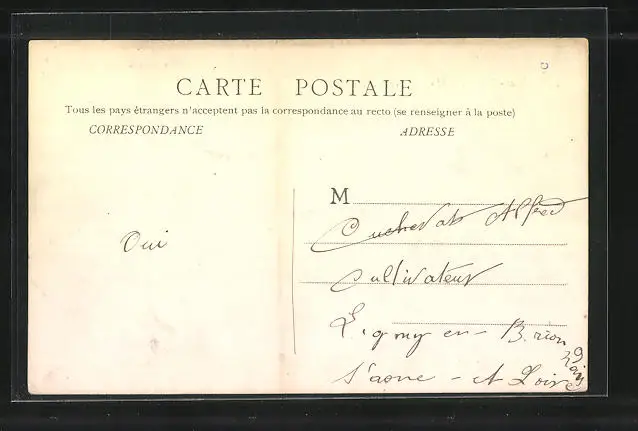 CARTE POSTALE
Tous les pays étrangers n'acceptent pas la correspondance au recto (se renseigner à la poste)
CORRESPONDANCE
ADRESSE
Oui
M
Cucherat Alfred
Cultivateur
Ligny en - Brion
nais
Saone - et Loire